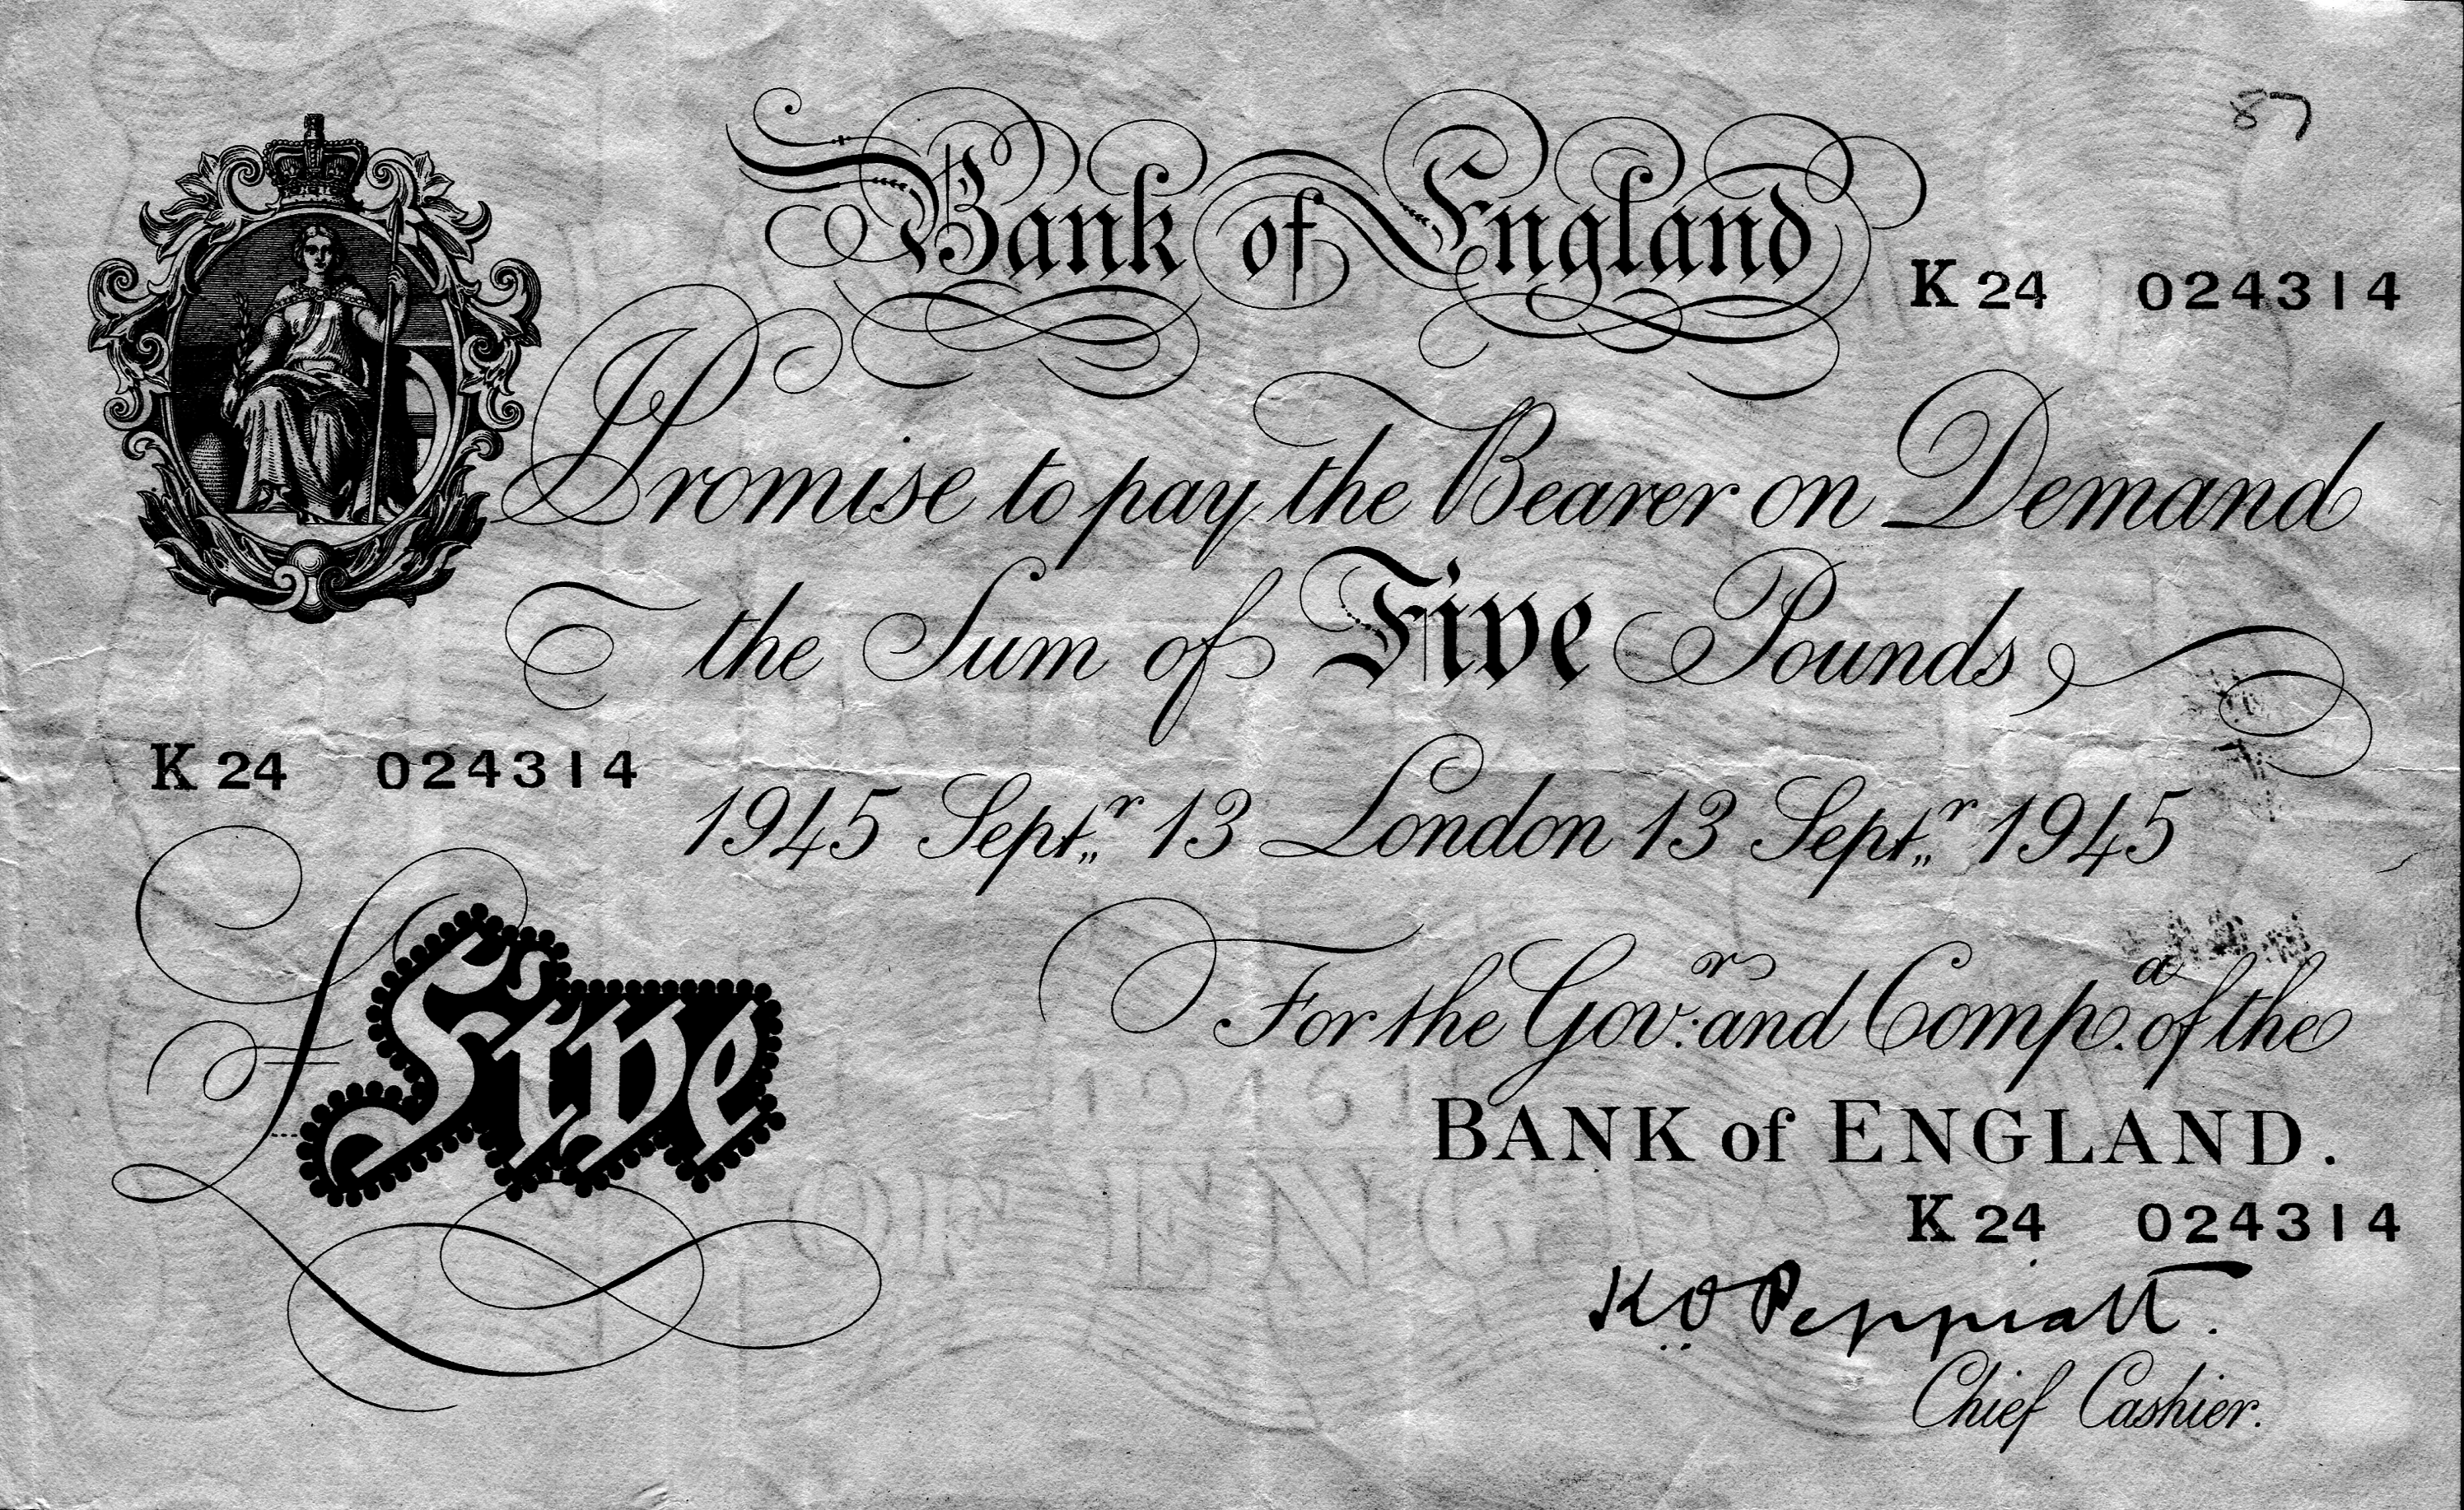 87
Bank of England
K 24 024314
I Promise to pay the Bearer on Demand
the Sum of Five Pounds
K 24 024314
1945 Septr 13 London 13 Septr 1945
£Five
For the Govr: and Compa. of the
BANK of ENGLAND.
K 24 024314
K O Peppiatt.
Chief Cashier.